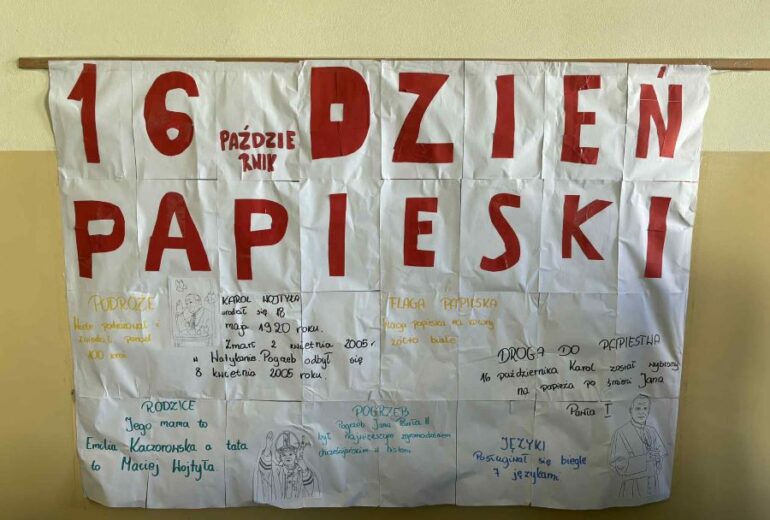 16 PAŹDZIERNIK DZIEŃ
PAPIESKI
PODRÓŻE
100 kraj
KAROL WOJTYŁA
urodził się 18
maja 1920 roku.
Zmarł 2 kwietnia 2005 r
w Watykanie. Pogrzeb odbył się
8 kwietnia 2005 roku.
FLAGA PAPIESKA
Flaga papieska ma kolory
żółto białe
DROGA DO PAPIESTWA
16 października Karol został wybrany
na papieża po śmierci Jana
Pawła I
RODZICE
Jego mama to
Emilia Kaczorowska a tata
to Maciej Wojtyła
POGRZEB
Pogrzeb Jana Pawła II
był największym zgromadzeniem
chrześcijańskim w historii
JĘZYKI
Posługiwał się biegle
7 językami